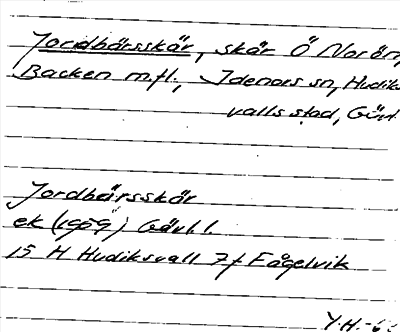 Jordbärsskär, skär Ö Norön,
Backen m.fl., Idenors sn, Hudiks
valls stad, Gävl.
Jordbärsskär
ek (1959) Gävl. l.
15 H Hudiksvall 7f Fågelvik
Y.H.-63